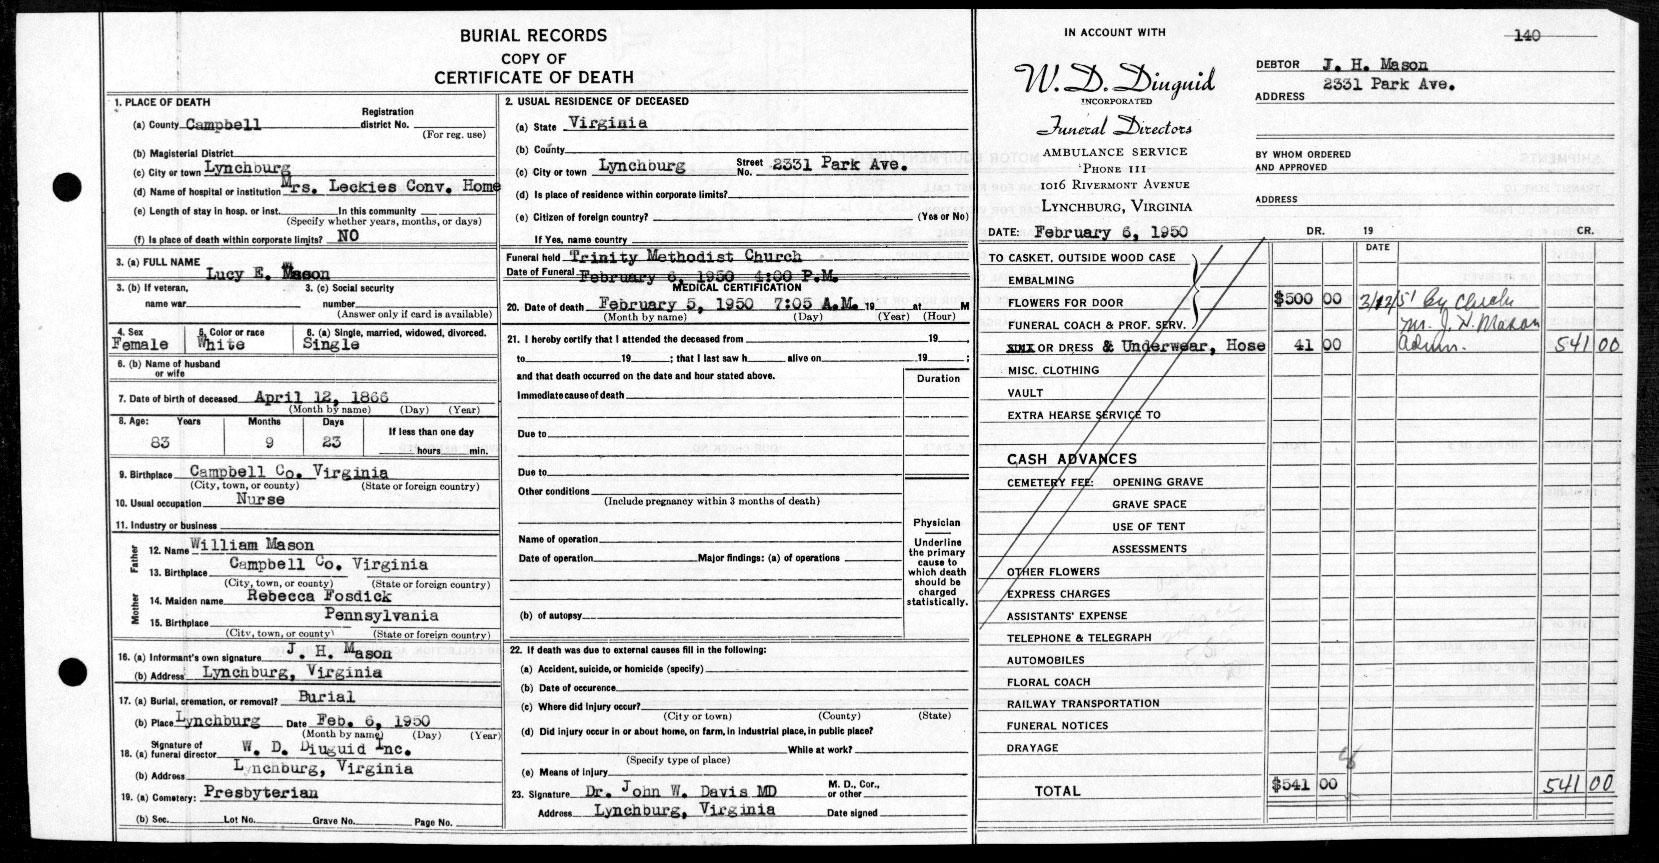 BURIAL RECORDS
COPY OF
CERTIFICATE OF DEATH
1. PLACE OF DEATH
(a) County Campbell Registration district No.
(For reg. use)
(b) Magisterial District
(c) City or town Lynchburg
(d) Name of hospital or institution Mrs. Leckies Conv. Home
(e) Length of stay in hosp. or inst. In this community
(Specify whether years, months, or days)
(f) Is place of death within corporate limits? NO
3. (a) FULL NAME Lucy E. Mason
3. (b) If veteran, name war 3. (c) Social security number
(Answer only if card is available)
4. Sex Female 5. Color or race White 6. (a) Single, married, widowed, divorced. Single
6. (b) Name of husband or wife
7. Date of birth of deceased April 12, 1866
(Month by name) (Day) (Year)
8. Age: Years Months Days If less than one day
83 9 23 hours min.
9. Birthplace Campbell Co. Virginia
(City, town, or county) (State or foreign country)
10. Usual occupation Nurse
11. Industry or business
Father
12. Name William Mason
13. Birthplace Campbell Co. Virginia
(City, town, or county) (State or foreign country)
Mother
14. Maiden name Rebecca Fosdick
15. Birthplace Pennsylvania
(City, town, or county) (State or foreign country)
16. (a) Informant's own signature J. H. Mason
(b) Address Lynchburg, Virginia
17. (a) Burial, cremation, or removal? Burial
(b) Place Lynchburg Date Feb. 6, 1950
(Month by name) (Day) (Year)
18. (a) Signature of funeral director W. D. Diuguid Inc.
(b) Address Lynchburg, Virginia
19. (a) Cemetery: Presbyterian
(b) Sec. Lot No. Grave No. Page No.
2. USUAL RESIDENCE OF DECEASED
(a) State Virginia
(b) County
(c) City or town Lynchburg Street No. 2331 Park Ave.
(d) Is place of residence within corporate limits?
(e) Citizen of foreign country? (Yes or No)
If Yes, name country
Funeral held Trinity Methodist Church
Date of Funeral February 6, 1950 4:00 P.M.
MEDICAL CERTIFICATION
20. Date of death February 5, 1950 7:05 A.M. 19 at M
(Month by name) (Day) (Year) (Hour)
21. I hereby certify that I attended the deceased from 19 ,
to 19 ; that I last saw h alive on 19 ;
and that death occurred on the date and hour stated above.
Duration
Immediate cause of death
Due to
Due to
Other conditions
(Include pregnancy within 3 months of death)
Name of operation
Date of operation Major findings: (a) of operations
(b) of autopsy
Physician
Underline
the primary
cause to
which death
should be
charged
statistically.
22. If death was due to external causes fill in the following:
(a) Accident, suicide, or homicide (specify)
(b) Date of occurence
(c) Where did Injury occur?
(City or town) (County) (State)
(d) Did injury occur in or about home, on farm, in industrial place, in public place?
While at work?
(Specify type of place)
(e) Means of Injury
23. Signature Dr. John W. Davis MD M. D., Cor., or other
Address Lynchburg, Virginia Date signed
IN ACCOUNT WITH
W. D. Diuguid
INCORPORATED
Funeral Directors
AMBULANCE SERVICE
PHONE 111
1016 RIVERMONT AVENUE
LYNCHBURG, VIRGINIA
140
DEBTOR J. H. Mason
ADDRESS 2331 Park Ave.
BY WHOM ORDERED
AND APPROVED
ADDRESS
DATE: February 6, 1950 DR. 19 CR.
DATE
TO CASKET, OUTSIDE WOOD CASE
EMBALMING
FLOWERS FOR DOOR $500 00 By Check
FUNERAL COACH & PROF. SERV. Mr. J. H. Mason
OR DRESS & Underwear, Hose 41 00 Adm. 541 00
MISC. CLOTHING
VAULT
EXTRA HEARSE SERVICE TO
CASH ADVANCES
CEMETERY FEE: OPENING GRAVE
GRAVE SPACE
USE OF TENT
ASSESSMENTS
OTHER FLOWERS
EXPRESS CHARGES
ASSISTANTS' EXPENSE
TELEPHONE & TELEGRAPH
AUTOMOBILES
FLORAL COACH
RAILWAY TRANSPORTATION
FUNERAL NOTICES
DRAYAGE
TOTAL $541 00 541 00